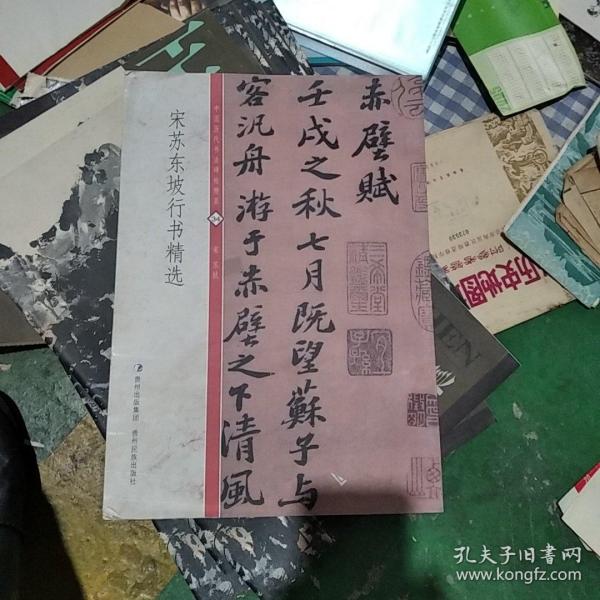 赤壁賦
壬戌之秋七月既望蘇子与
客汎舟游于赤壁之下清風
34
宋 苏轼
宋苏东坡行书精选
贵州出版集团 贵州民族出版社
历史地图
附参考答案
孔夫子旧书网
www.kongfz.com